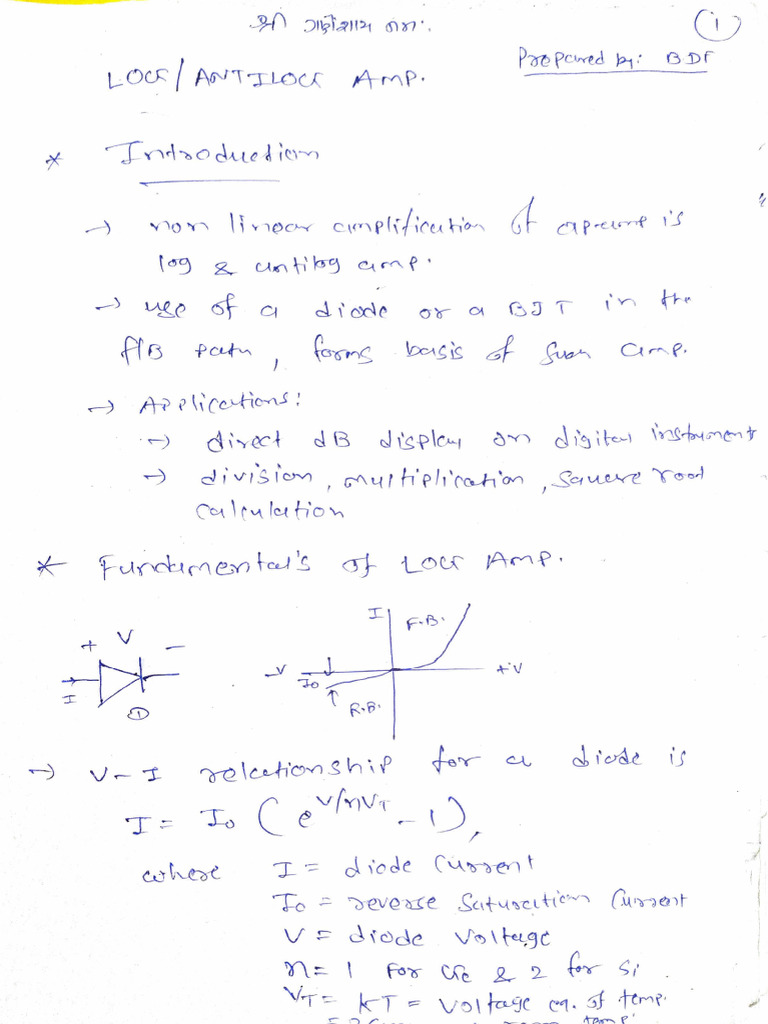 श्री गणेशाय नमः
1
Prepared by: BDF
LOG/ANTILOG AMP.
* Introduction
→ non linear amplification of op-amp is
log & antilog amp.
→ use of a diode or a BJT in the
f/B path, forms basis of such amp.
→ Applications:
→ direct dB display on digital instrument
→ division, multiplication, square root
calculation
* Fundamental's of LOG Amp.
+ V -
I
1
I
F.B.
-V
I₀
+V
R.B.
→ V-I relationship for a diode is
I = I₀ (e^V/nVT - 1),
where I = diode current
I₀ = reverse saturation current
V = diode voltage
n = 1 for Ge & 2 for Si
VT = KT = voltage eq. of temp.